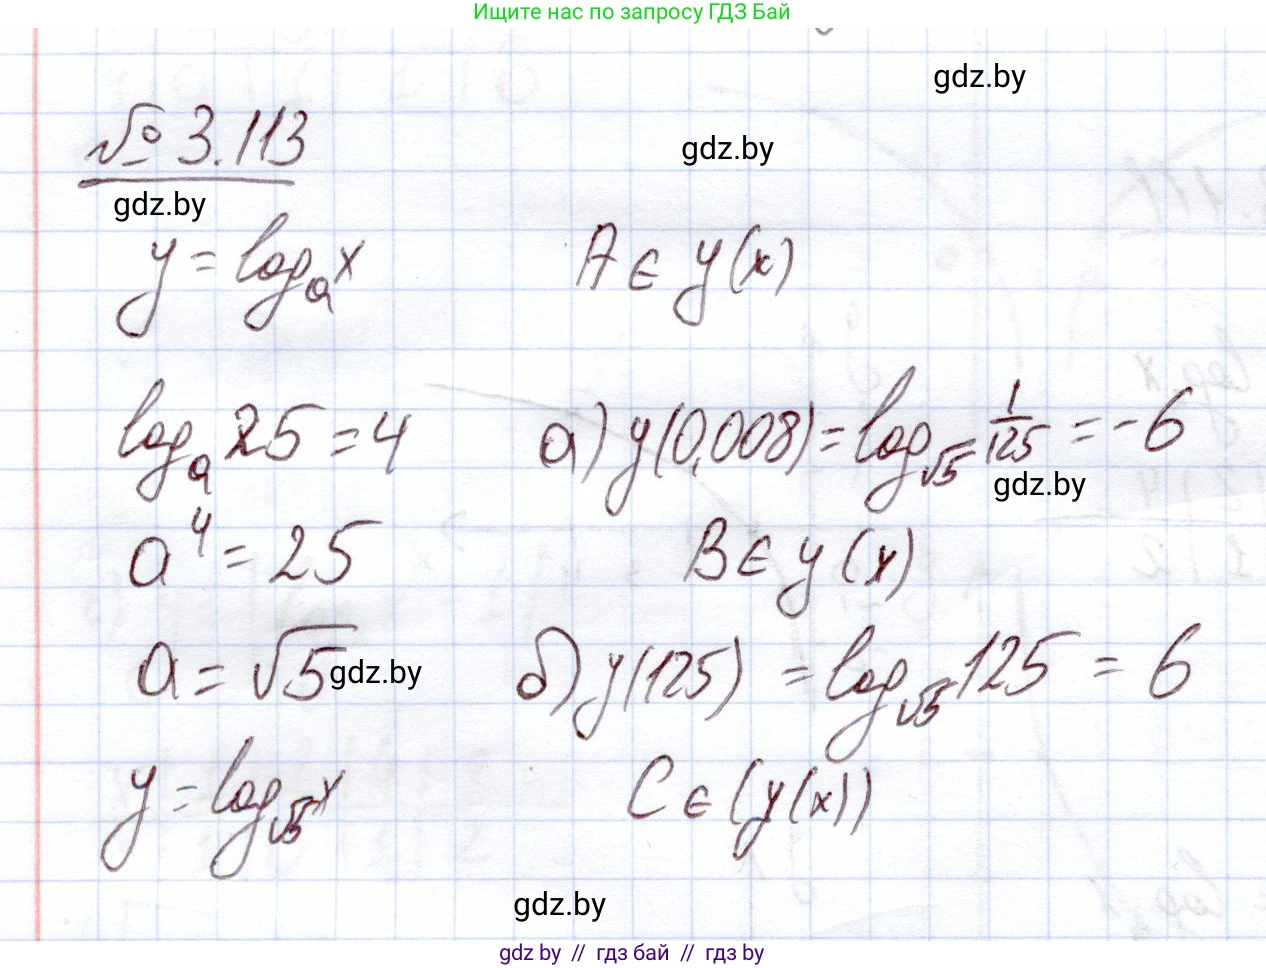 Ищите нас по запросу ГДЗ Бай
gdz.by
№ 3.113
gdz.by
gdz.by
y = logₐx
A ∈ y(x)
logₐ25 = 4
а) y(0,008) = log_√5 1/125 = -6
gdz.by
a⁴ = 25
B ∈ y(x)
a = √5
gdz.by
б) y(125) = log_√5 125 = 6
y = log_√5 x
C ∈ (y(x))
gdz.by
gdz by // гдз бай // гдз by